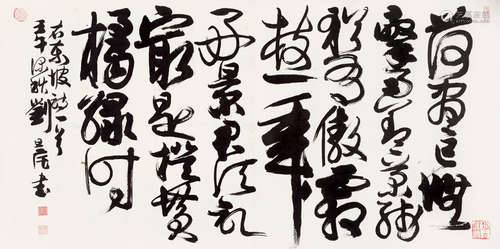 荷尽已無
擎雨盖菊残
猶有傲霜
枝一年
好景君须記
最是橙黄
橘绿时
右东坡诗一首
壬午深秋劉书